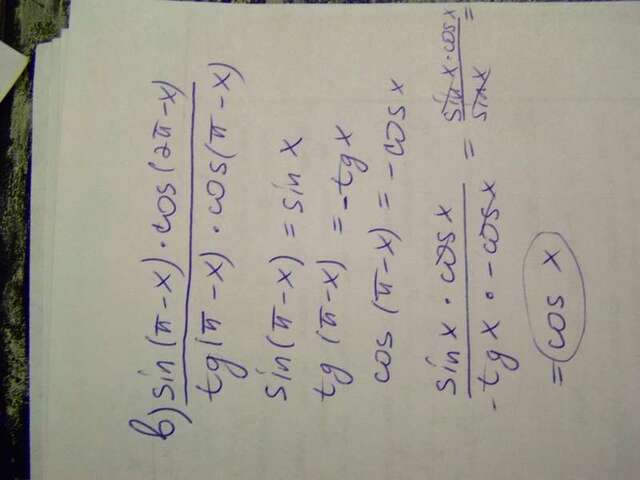 в) sin(π-x)·cos(2π-x)
tg(π-x)·cos(π-x)
sin(π-x) = sin x
tg(π-x) = -tg x
cos(π-x) = -cos x
sin x · cos x / -tg x · -cos x = sin x · cos x / sin x =
= cos x